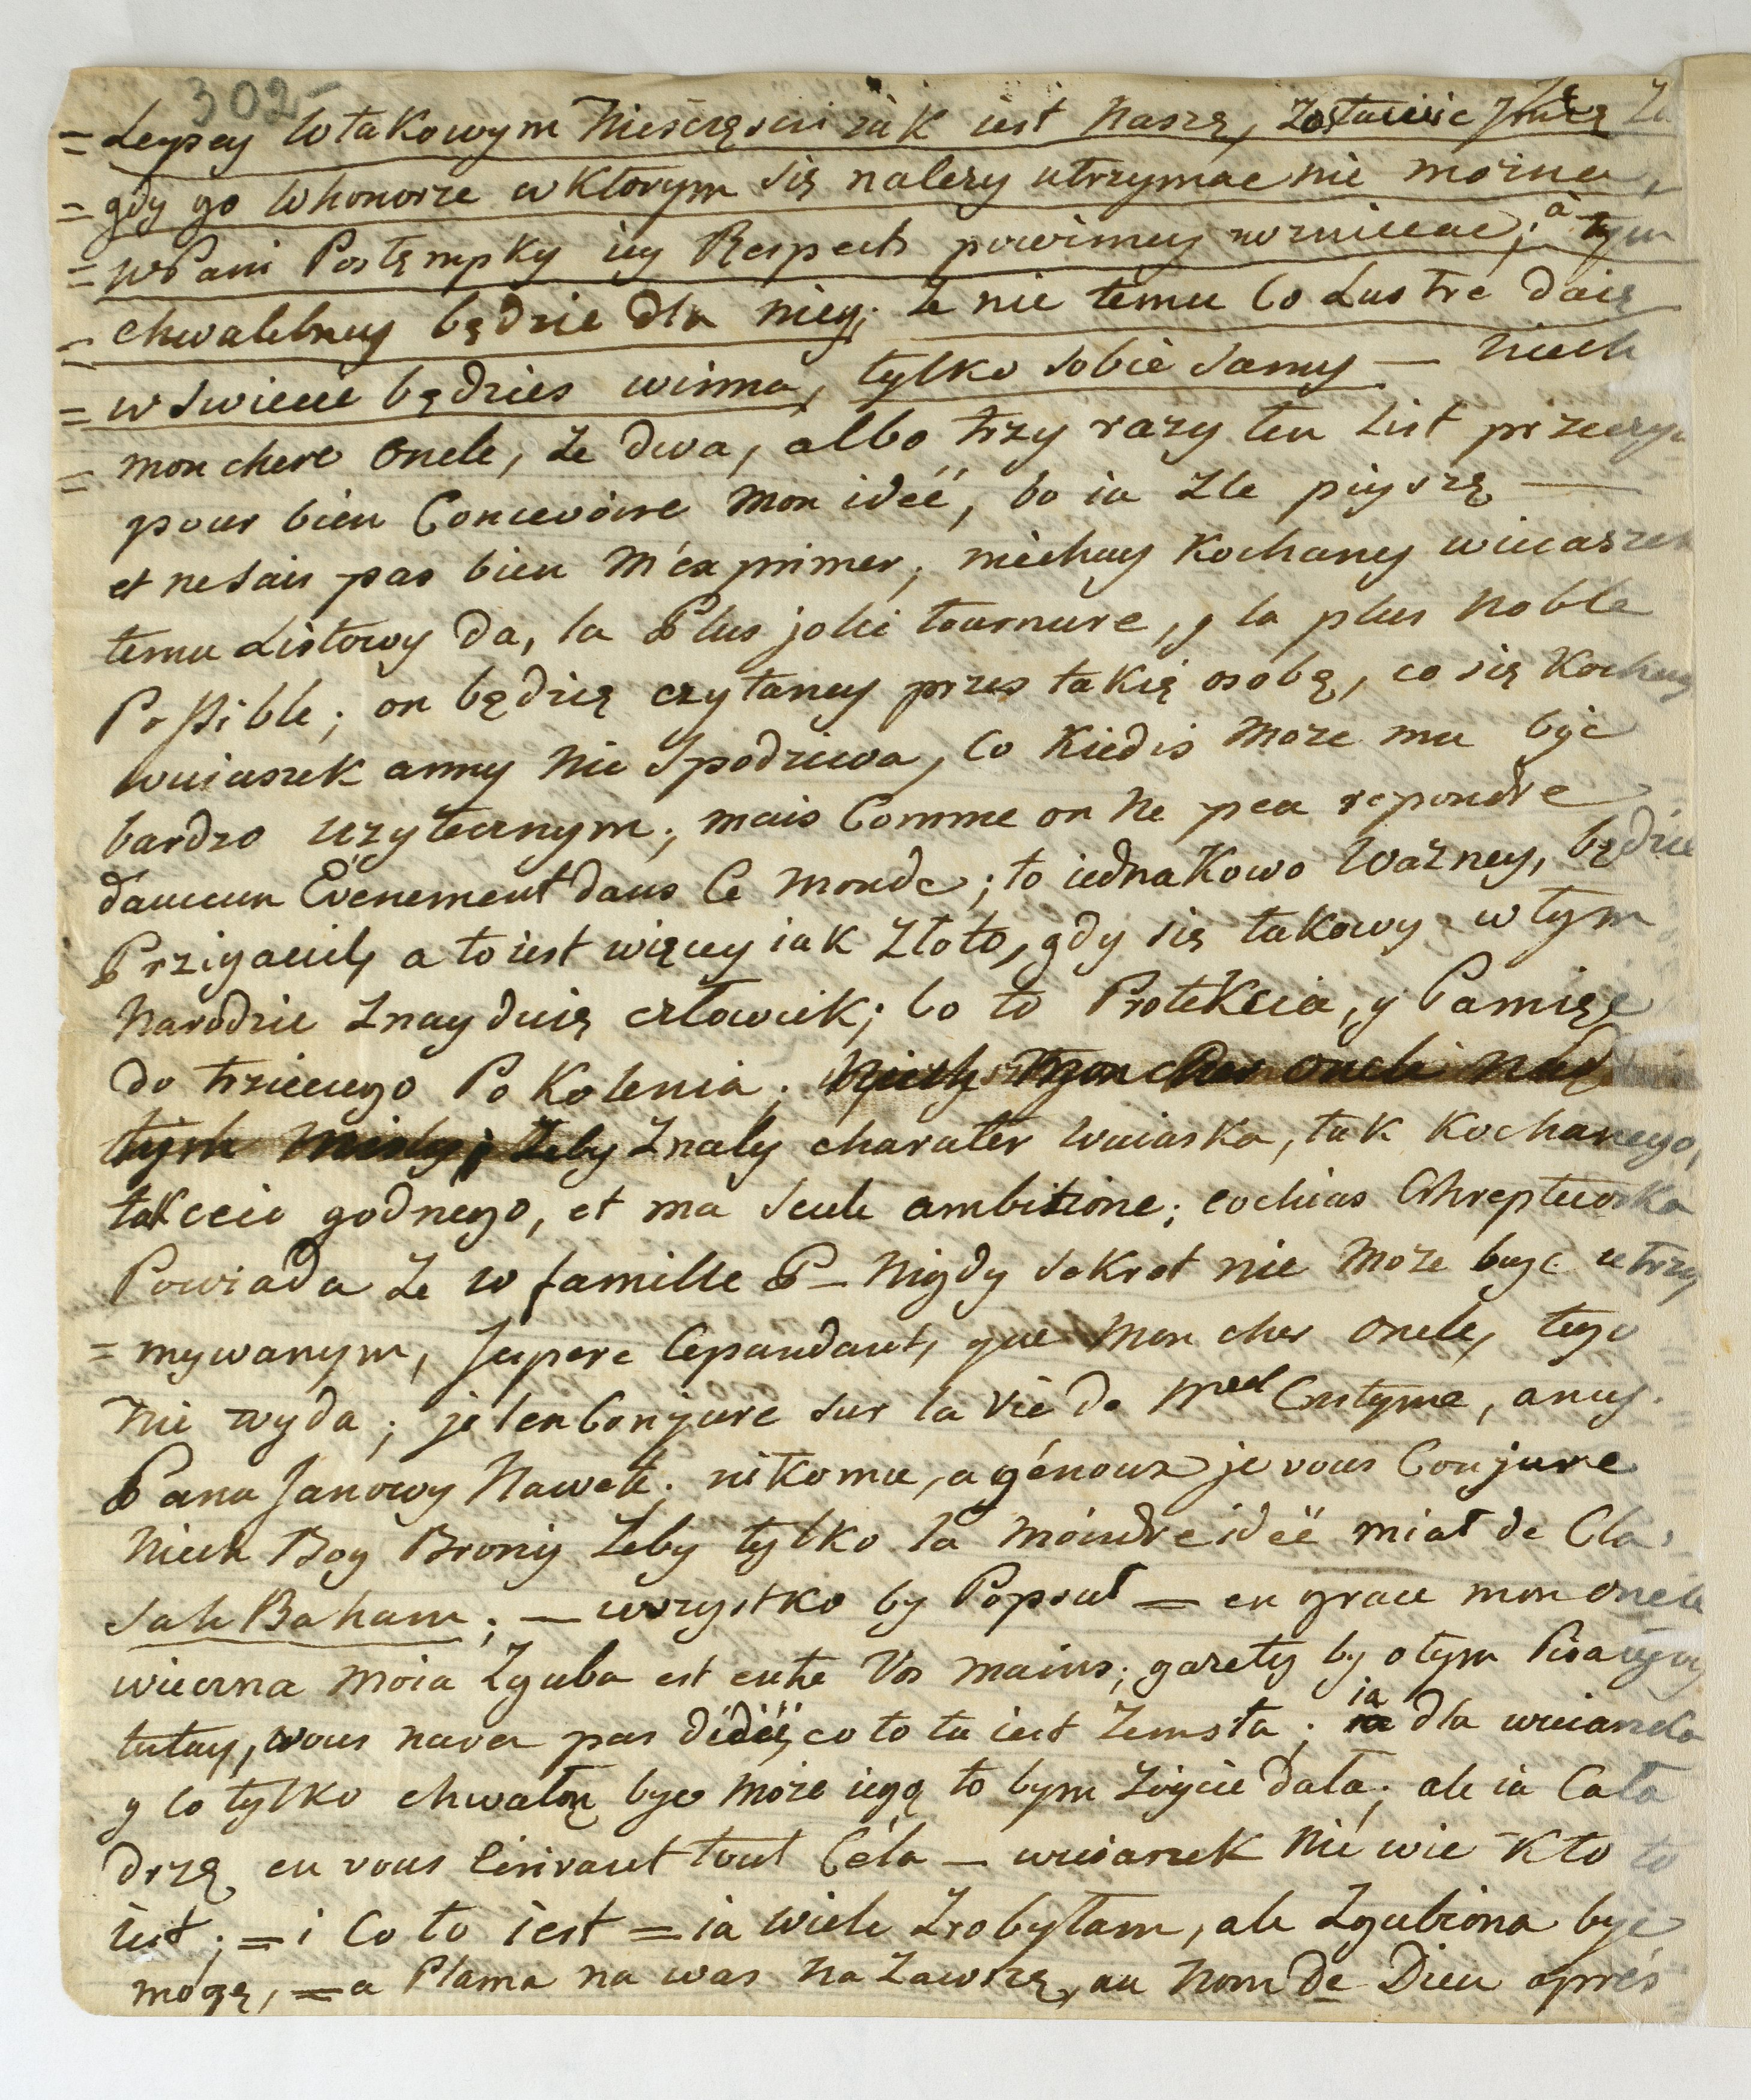 302
= Lepsey w takowym Nieszczęsciu iak iest Naszę, zostawic
= gdy go w honorze w Ktorym się nalezy utrzymac nie mozna,
= w Pani Postęmpky iey Respect powinny à tym
= chwalebney będzie dla niey; Ze nie temu Co Lustre daię
= w Swiecie będzies winna, tylko Sobie Samey — Niech
= mon chere oncle, Ze dwa, albo trzy razy ten List
pour bien Concevoire Mon ideé, bo ia Zle piyszę —
et ne Sais pas bien M'ex primer; niechay Kochaney wuiaszek
temu Listowy Da, la Plus jolie tournure, y la plus Noble
Possible; on będzię czytaney przes takię osobę, co się Kochaney
wuiaszek anny Nie Spodziewa, Co Kiedis Moze mu byc
bardzo uzytecznym; mais Comme on Ne peu repondre
daucun Evenement dans Ce Monde; to iednakowo Wazney, będzie
Przigaciel, a to iest więcy iak Złoto, gdy się takowy w tym
Narodzie Znayduię człowiek; bo to Protekcia, y Pamięc
do trzieciego Po Kolenia; Niech Mon cher oncle
tym Zeby Znaly charater wuiaska, tak Kochanego,
tak ceie godnego, et ma Seule ambitione; cochias Chreptuoska
Powiada Ze w famille P— Nigdy Sekret nie Moze bydz utrzy
= mywanym, Jespere Cepandant, que Mon cher oncle, tego
Nie wyda; je len Conjure Sur la Vie de Mad Custyme, aney
Pana Janowy Nawet; nikomu, a génoux je vous Conjure
Niech Bog Broniy Zeby tylko la moindre ideé miał de Cla
Sale Baham; — wszystko by Popsuł = en grace mon oncle
wieczna Moia Zguba est entre Vos mains; gazety by o tym
tutay, vous navez pas dideé, co to tu iest Zemsta; ia dla wuiaszka
y Co tylko chwałą byc moze iegą to bym Ziycie Dała; ale ia Cała
drzę en vous Ecrivant tout Céla — wuiaszek Nie wie Kto to
iest; = i Co to iest = ia Wiele Zrobyłam, ale Zgubiona byc
mogę, = a Plama na was Na Zawszę, au Nom de Dieu aprés